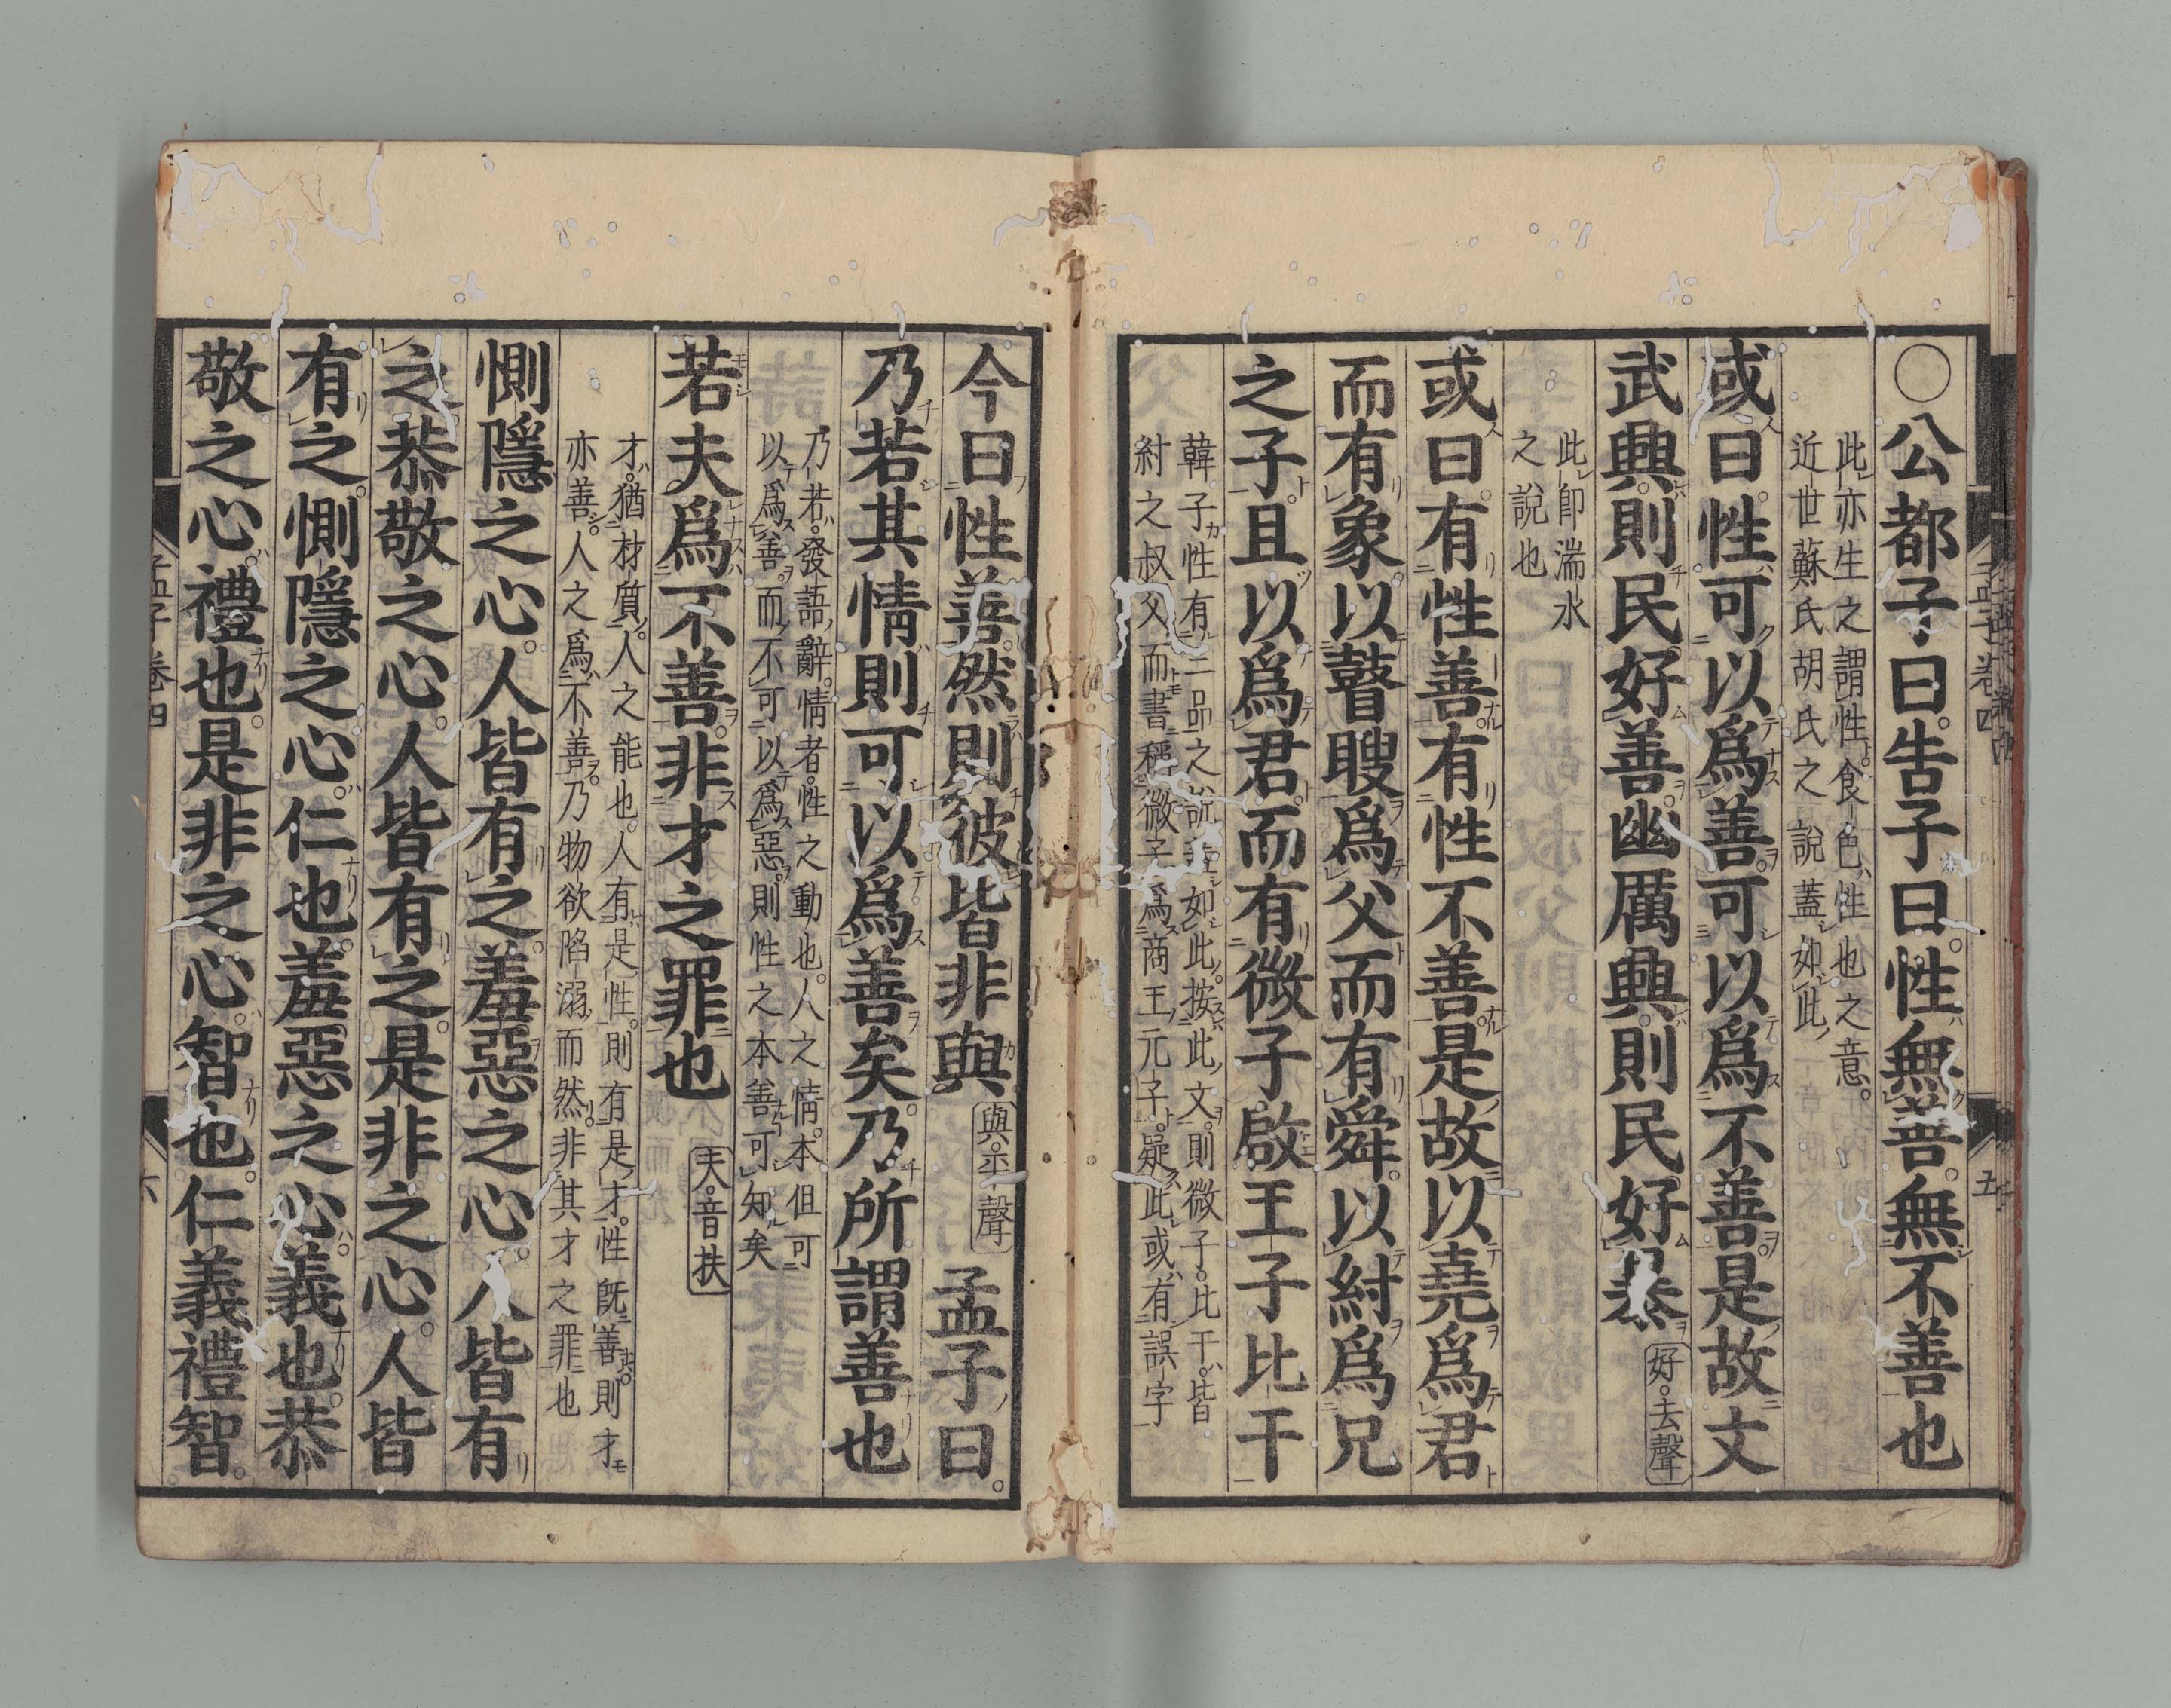 ○公都子曰告子曰性無善無不善也
此亦生之謂性食色性也之意
近世蘇氏胡氏之說蓋如此
或曰性可以爲善可以爲不善是故文
武興則民好善幽厲興則民好暴
好去聲
此卽湍水
之說也
或曰有性善有性不善是故以堯爲君
而有象以瞽瞍爲父而有舜以紂爲兄
之子且以爲君而有微子啟王子比干
韓子性有三品之說蓋如此按此文則微子比干皆
紂之叔父而書稱微子爲商王元子疑此或有誤字
孟子卷四
五
今曰性善然則彼皆非與
與平聲
孟子曰
乃若其情則可以爲善矣乃所謂善也
乃若發語辭情者性之動也人之情本但可
以爲善而不可以爲惡則性之本善可知矣
若夫爲不善非才之罪也
夫音扶
才猶材質人之能也人有是性則有是才性旣善則才
亦善人之爲不善乃物欲陷溺而然非其才之罪也
惻隱之心人皆有之羞惡之心人皆有
之恭敬之心人皆有之是非之心人皆
有之惻隱之心仁也羞惡之心義也恭
敬之心禮也是非之心智也仁義禮智
孟子卷四
六